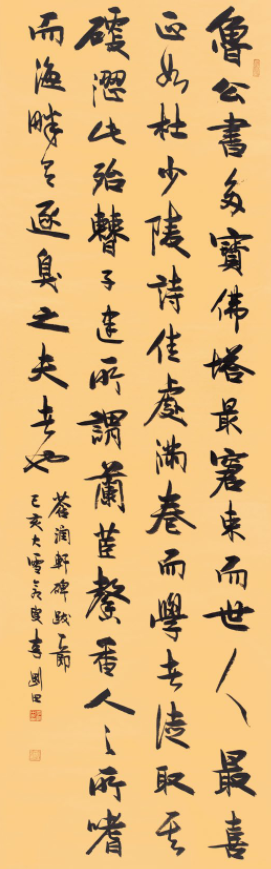 魯公書多寶佛塔最窘束而世人最喜
正如杜少陵詩佳處滿卷而學者徒取其
硬澀此殆曹子建所謂蘭茝馨香人之所嗜
而海畔有逐臭之夫者也
蒼潤軒碑跋一節
己亥大雪李剛田